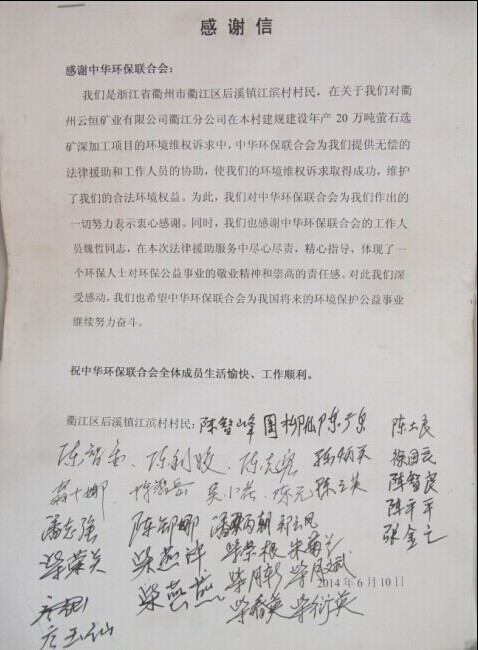 感谢信
感谢中华环保联合会：
我们是浙江省衢州市衢江区后溪镇江滨村村民，在关于我们对衢
州云恒矿业有限公司衢江分公司在本村建规建设年产 20 万吨萤石选
矿深加工项目的环境维权诉求中，中华环保联合会为我们提供无偿的
法律援助和工作人员的协助，使我们的环境维权诉求取得成功，维护
了我们的合法环境权益。为此，我们对中华环保联合会为我们作出的
一切努力表示衷心感谢。同时，我们也感谢中华环保联合会的工作人
员魏哲同志，在本次法律援助服务中尽心尽责，精心指导，体现了一
个环保人士对环保公益事业的敬业精神和崇高的责任感。对此我们深
受感动，我们也希望中华环保联合会为我国将来的环境保护公益事业
继续努力奋斗。
祝中华环保联合会全体成员生活愉快、工作顺利。
衢江区后溪镇江滨村村民：陈智峰
陈土良
陈利姣
徐国云
陈智良
陈平平
潘志强 陈卸娜
张金之
柴燕萍 柴荣根 朱菊兰
柴燕燕
2014 年 6 月 10 日
柴香英